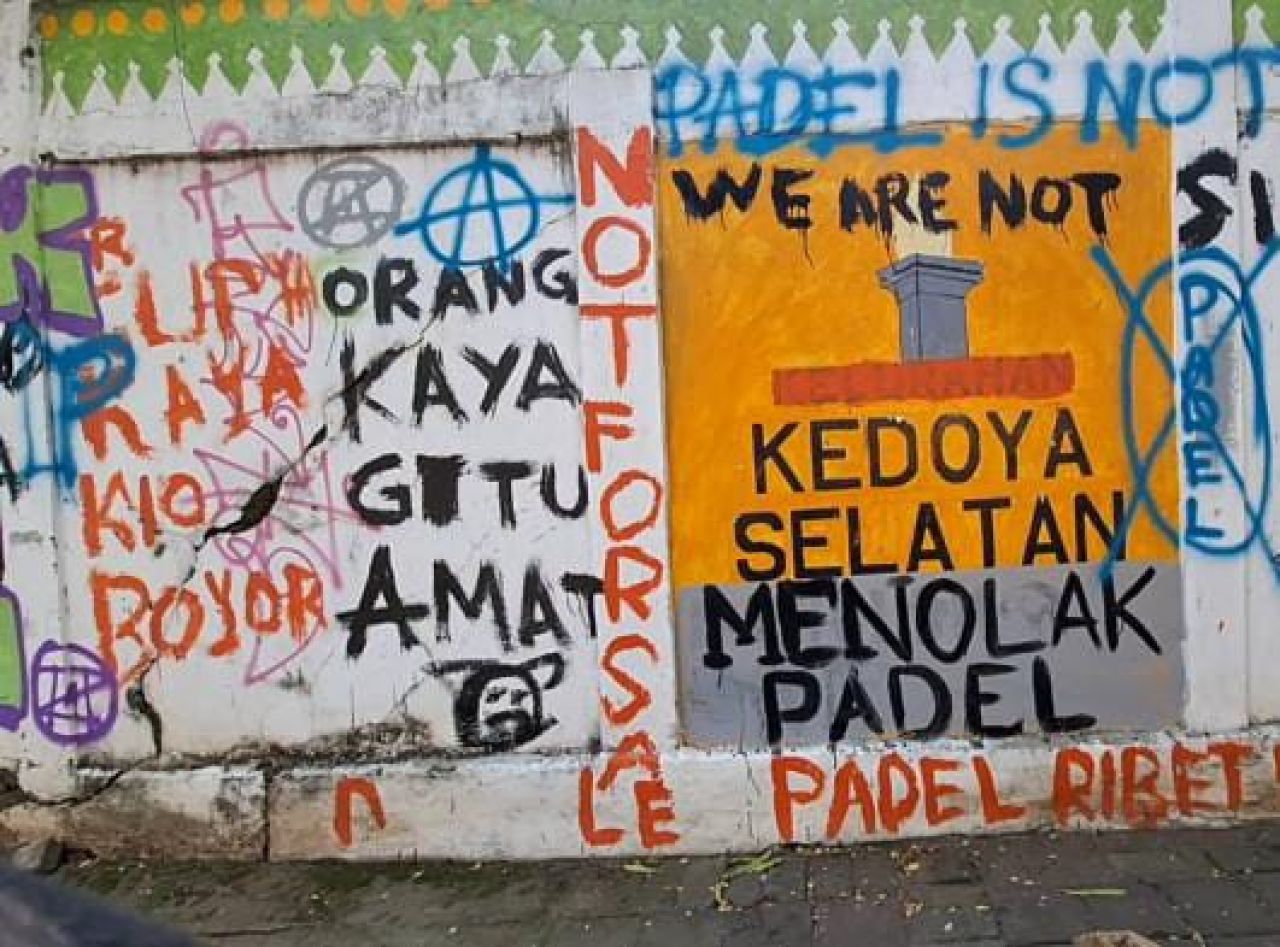 PADEL IS NOT
WE ARE NOT
ORANG
KAYA
GITU
AMAT
NOT FOR SALE
KELURAHAN
KEDOYA
SELATAN
MENOLAK
PADEL
PADEL
KAYA
KIO
ROYOR
PADEL RIBET